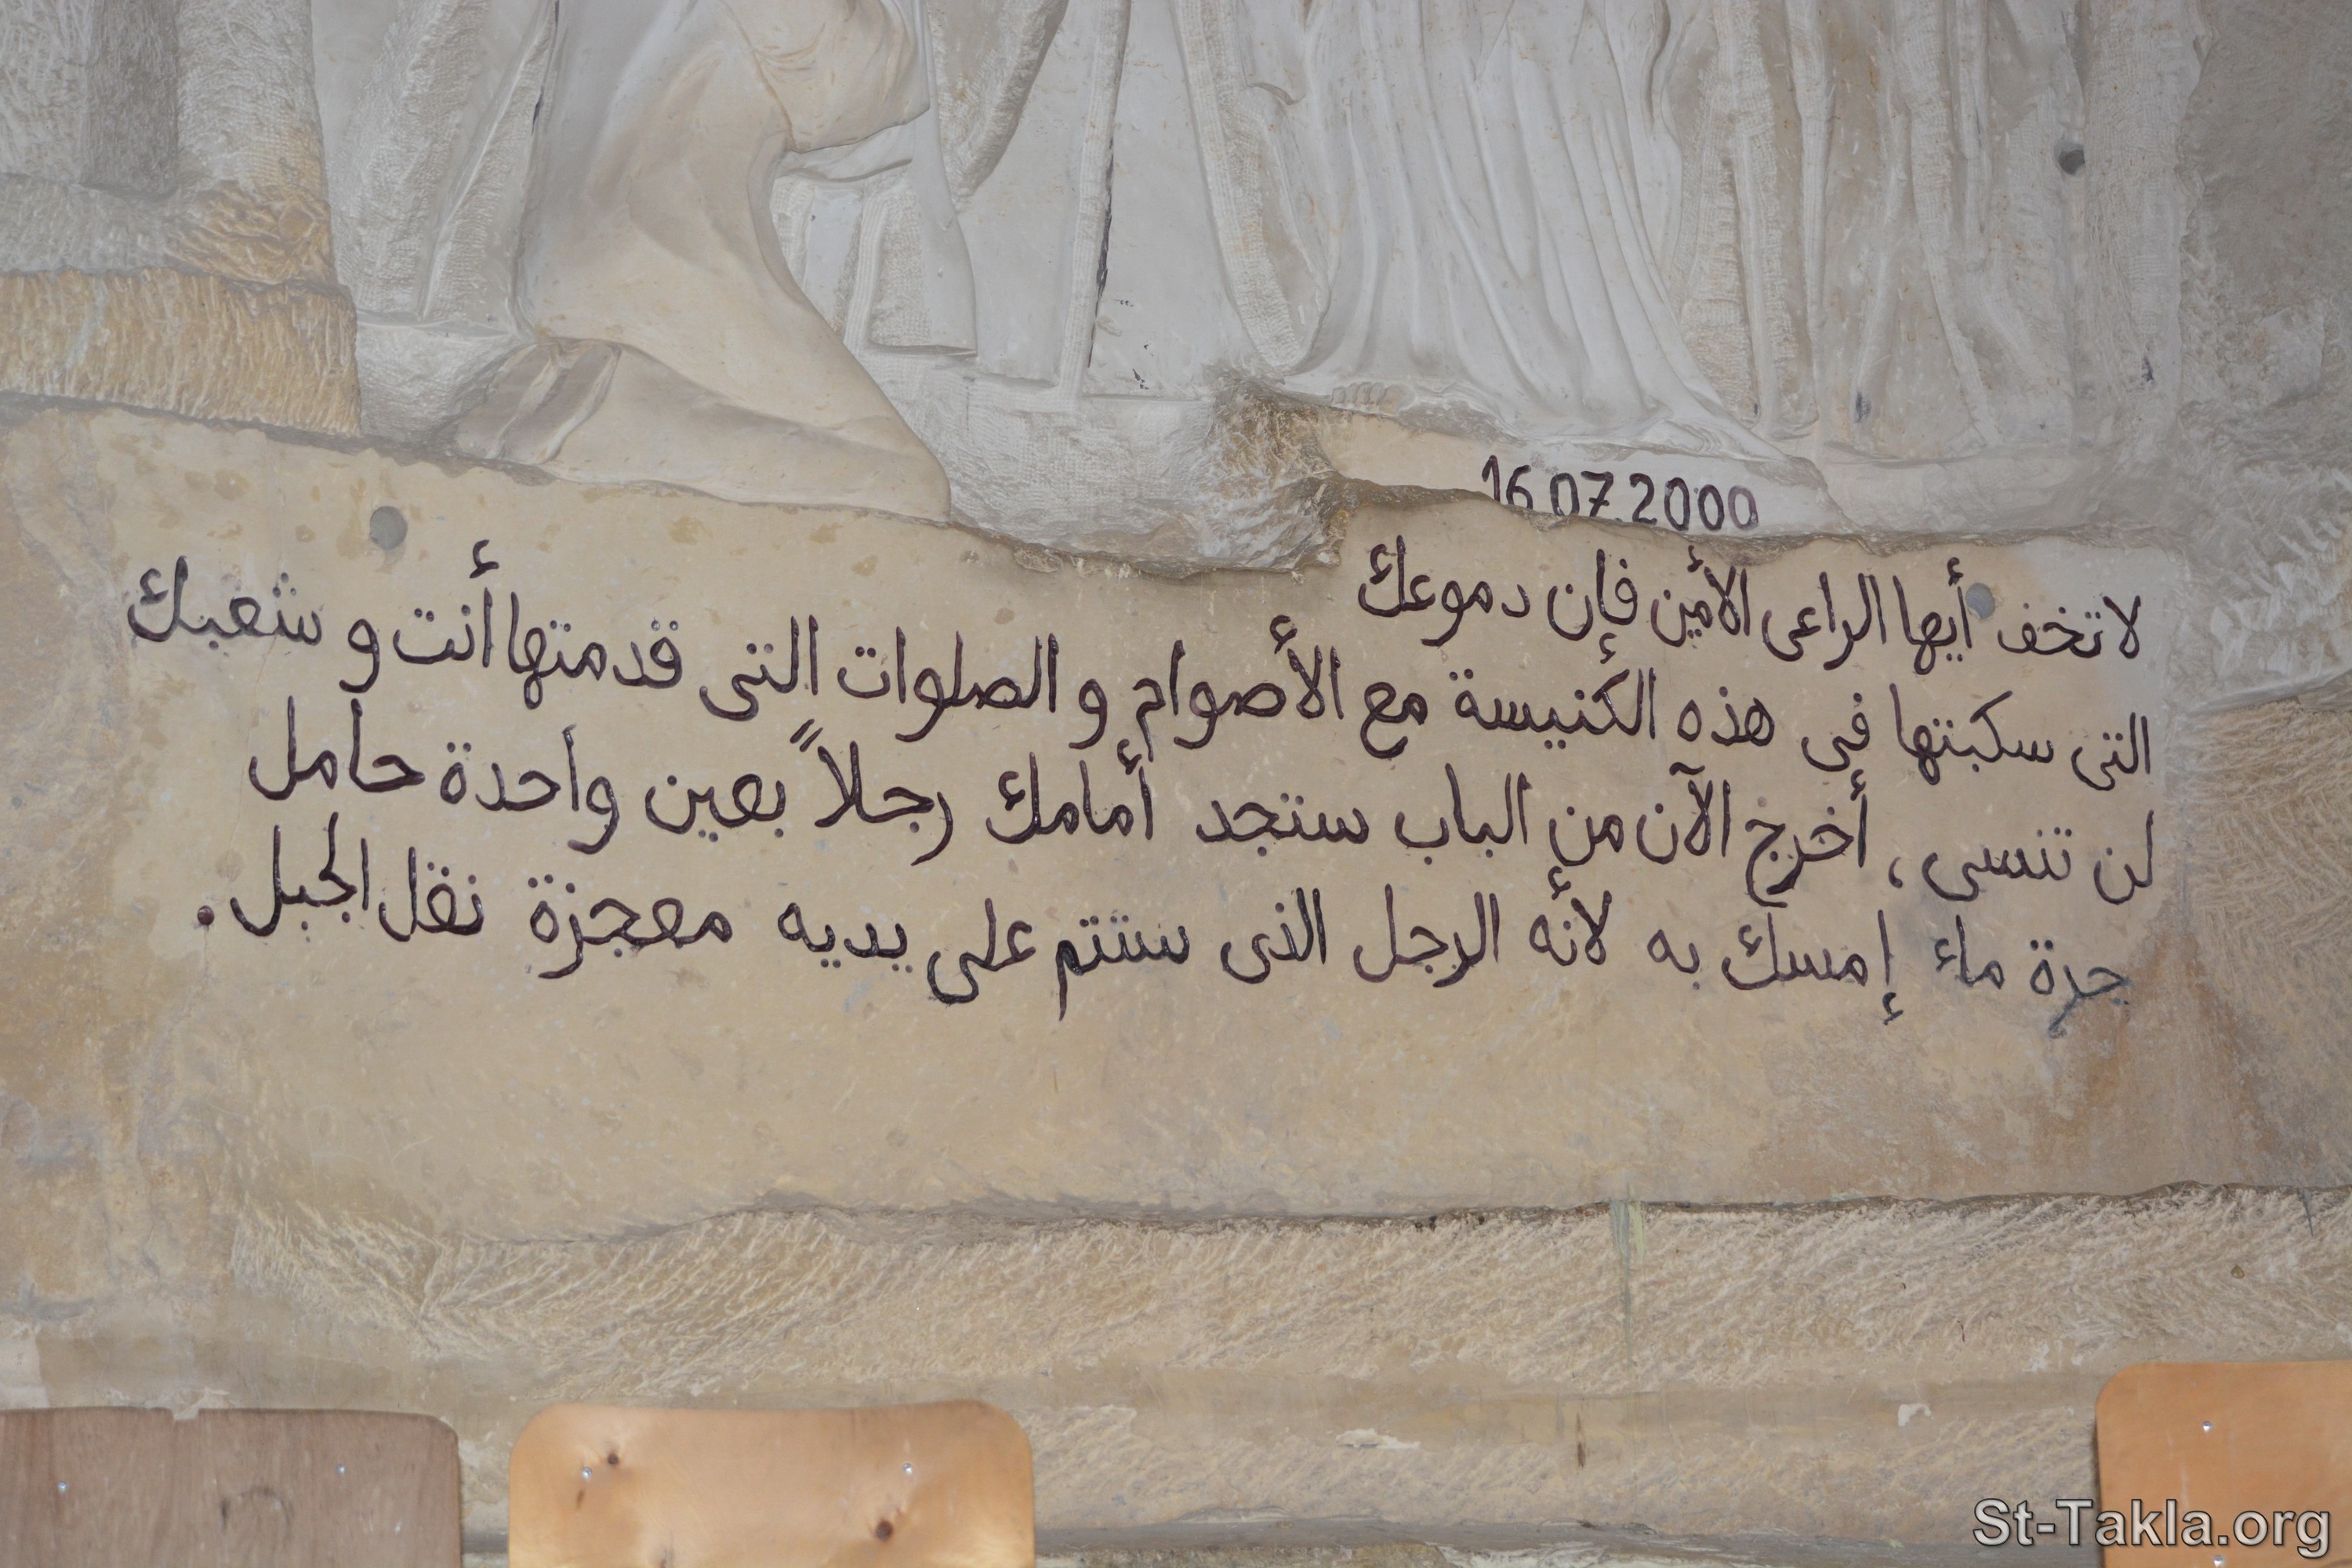 16.07.2000
لا تخف أيها الراعى الأمين فإن دموعك
التى سكبتها فى هذه الكنيسة مع الأصوام و الصلوات التى قدمتها أنت و شعبك
لن تنسى ، أخرج الآن من الباب ستجد أمامك رجلاً بعين واحدة حامل
جرة ماء إمسك به لأنه الرجل الذى ستتم على يديه معجزة نقل الجبل .
St-Takla.org